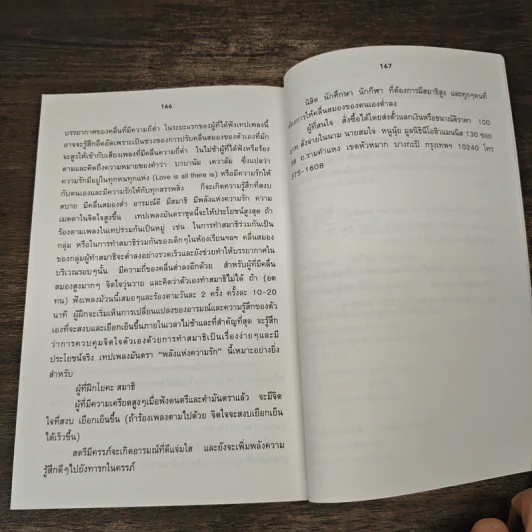 166
บรรยากาศของคลื่นที่มีความถี่ต่ำ ในระยะแรกของผู้ที่ได้ฟังเทปเพลงนี้
อาจจะรู้สึกอึดอัดเพราะเป็นช่วงของการปรับคลื่นสมองของตัวเองที่มัก
จะสูงให้เข้ากับเสียงเพลงที่มีคลื่นความถี่ต่ำ ในไม่ช้าผู้ที่ได้ฟังหรือร้อง
ตามและคิดถึงความหมายของคำว่า บาบานัม เควาลัม ซึ่งแปลว่า
ความรักมีอยู่ในทุกหนทุกแห่ง (Love is all there is) หรือมีความรักให้
กับตนเองและมีความรักให้กับทุกสรรพสิ่ง ก็จะเกิดความรู้สึกที่สงบ
สบาย มีคลื่นสมองต่ำ อารมณ์ดี มีสมาธิ มีพลังแห่งความรัก ความ
เมตตาในจิตใจสูงขึ้น เทปเพลงมันตราชุดนี้จะให้ประโยชน์สูงสุด ถ้า
ร้องตามเพลงในเทปร่วมกันเป็นหมู่ เช่น ในการทำสมาธิร่วมกันเป็น
กลุ่ม หรือในการทำสมาธิร่วมกันของเด็กๆในห้องเรียนฯลฯ คลื่นสมอง
ของกลุ่มผู้ทำสมาธิจะต่ำลงอย่างรวดเร็วและยังช่วยทำให้บรรยากาศใน
บริเวณรอบๆนั้น มีความถี่ของคลื่นต่ำลงอีกด้วย สำหรับผู้ที่มีคลื่น
สมองสูงมากๆ จิตใจวุ่นวาย และคิดว่าตัวเองทำสมาธิไม่ได้ ถ้า (อด
ทน) ฟังเพลงม้วนนี้เสมอๆและร้องตามวันละ 2 ครั้ง ครั้งละ 10-20
นาที ผู้ฝึกจะเริ่มเห็นการเปลี่ยนแปลงของอารมณ์และความรู้สึกของตัว
เองที่จะสงบและเยือกเย็นขึ้นภายในเวลาไม่ช้าและที่สำคัญที่สุด จะรู้สึก
ว่าการควบคุมจิตใจตัวเองด้วยการทำสมาธิเป็นเรื่องง่ายๆและมี
ประโยชน์จริง เทปเพลงมันตรา “พลังแห่งความรัก” นี้เหมาะอย่างยิ่ง
สำหรับ
ผู้ที่ฝึกโยคะ สมาธิ
ผู้ที่มีความเครียดสูงๆเมื่อฟังดนตรีและคำมันตราแล้ว จะมีจิต
ใจที่สงบ เยือกเย็นขึ้น (ถ้าร้องเพลงตามไปด้วย จิตใจจะสงบเยือกเย็น
ได้เร็วขึ้น)
สตรีมีครรภ์จะเกิดอารมณ์ที่ดีแจ่มใส และยังจะเพิ่มพลังความ
รู้สึกดีๆไปยังทารกในครรภ์
167
นิสิต นักศึกษา นักกีฬา ที่ต้องการมีสมาธิสูง และทุกๆคนที่
ต้องการให้คลื่นสมองของตนเองต่ำลง
ผู้ที่สนใจ สั่งซื้อได้โดยส่งตั๋วแลกเงินหรือธนาณัติราคา 100
สั่งจ่ายในนาม นายสมใจ หนูนุ้ย มูลนิธินีโอฮิวแมนนิส 130 ซอย
38 ถ.รามคำแหง เขตหัวหมาก บางกะปิ กรุงเทพฯ 10240 โทร
375-1608